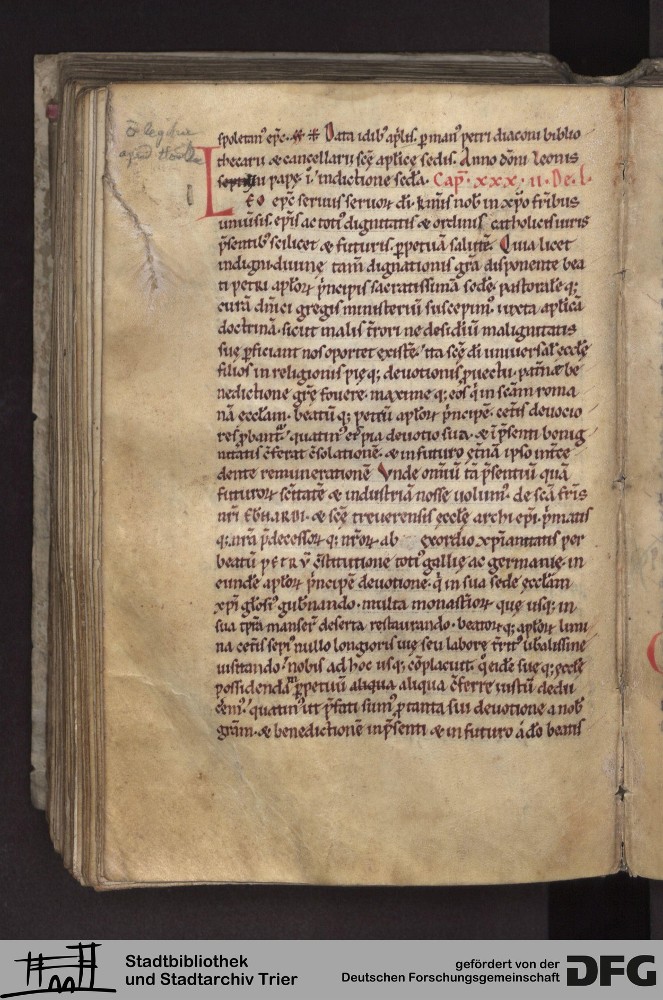 spoletan' ep̄c. Data idib' ap̄lis. p̱ man' petri diaconi biblio
thecarii & cancellarii sc̄ę ap̄licę sedis. Anno dōni Leonis
pape. i. indictione sc̄da. Cap̄. xxx.ii. De. l.
LEO ep̄c servus servoꝝ dī. kr̄mis nob̄ in xp̄o fr̄ibus
univ̄sis. ep̄is ac toti' dignitatis & ordinis catholicis viris
p̄sentib' scilicet & futuris. p̱petuā salutē. Quia licet
indigni divinę tam̄ dignationis gr̄a disponente bea
ti petri ap̄loꝝ p̄ncipis sacratissimā sedē. pastoraleq;
curā dn̄ici gregis ministeriū suscepim'. iuxta ap̄licā
doctrinā. sicut malis t̄rori ne desidiū malignitatis
suę p̱ficiant nos oportet existē. ita sc̄ę dī universal' ecclę
filios in religionis pięq; devotionis p̱vectu. pat̄na be
nedictione gr̄ę fovere. maxime q; eos q̇ in sc̄am roma
nā eccl̄am. beatū q; petrū ap̄loꝝ p̄ncipē. cet̄is devocio
res p̱bant'. quatin' et p̱ pia devotio sua. & ī p̄senti benig
nitatis c̄ferat c̄solationē. & in futuro et̄nā ipso int̄ce
dente remunerationē. Unde om̄iū tā p̄sentiū quā
futuroꝝ sc̄itatē & industriā nosse volum'. de sc̄a fr̄is
nr̄i EBURARDI. & sc̄ę treverensis ecclę archiep̄i. p̄matis
q; nr̄a p̄decessoꝝ q; nr̄oꝝ ab exordio xp̄ianitatis per
beatū PETRŪ c̄stitutione toti' gallię ac germanię. in
eundē ap̄loꝝ p̄ncipē devotione. q̇ in sua sede eccl̄am
xp̄i gl̄os' gub̄nando. multa monast̄ioꝝ que usq; in
sua tp̄ra manser̄ deserta restaurando. beatoꝝ q; ap̄loꝝ limi
na cet̄is sepi' nullo longioris vię seu laborē t̄rit' v̄balissime
visitando. nobis ad hoc usq; cōplacuit. q̇ eidē suę q; ecclę
possidenda in p̱petuū aliqua aliqua c̄ferre iustū dedu
cēm'. quatin' ut p̄fati sum' p̱ tanta sui devotione a nob̄
gr̄am. & benedictionē in p̄senti & in futuro a dō beatis
Stadtbibliothek
und Stadtarchiv Trier
gefördert von der
Deutschen Forschungsgemeinschaft
DFG